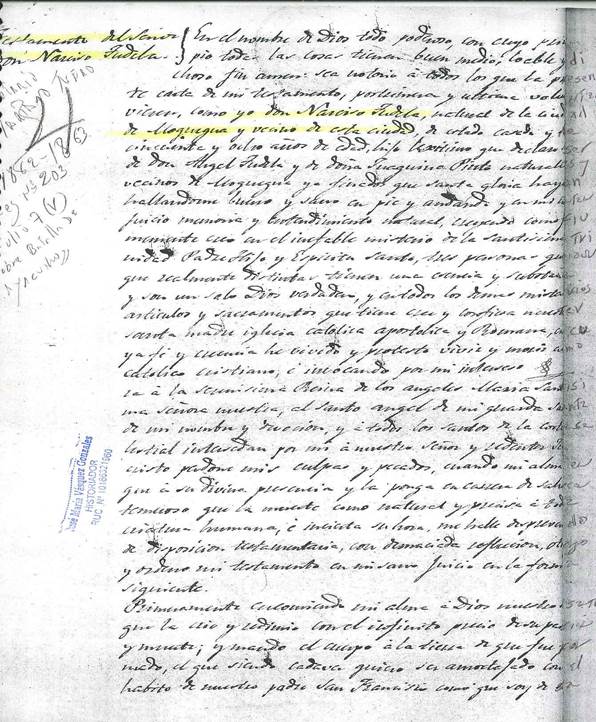 Testamento del Señor
Don Narciso Tudela.
En el nombre de Dios todo poderoso, con cuyo prin
pio todas las cosas tienen buen medio, loable y di
choso fin amen: sea notorio a todos los que la presen
te carta de mi testamento, postrimera y ultima volun
vieren, como yo don Narciso Tudela, natural de la ciudad
de Moquegua y vecino de esta ciudad, de estado casado y de
cincuenta y ocho años de edad, hijo legitimo que declaro ser
de don Angel Tudela y de doña Juaquina Pinto naturales y
vecinos de Moquegua ya finados que santa gloria hayan
hallandome bueno y sano en pie y andando y en mi
juicio memoria y entendimiento natural, creyendo como fir
memente creo en el inefable misterio de la santisima Tri
nidad Padre Hijo y Espiritu Santo, tres personas que
que realmente distintas tienen una esencia y substancia
y son un solo Dios verdadero, y en todos los demas misterios
articulos y sacramentos que tiene cree y confiesa nuestra
santa madre iglesia catolica apostolica y Romana, en cu
ya fé y creencia he vivido y protesto vivir y morir como
catolico cristiano, é invocando por mi interceso
ra á la serenisima Reina de los angeles Maria Santisi
ma señora nuestra, al santo angel de mi guarda
de mi nombre y devocion, y á todos los santos de la corte ce
lestial intercedan por mi á nuestro señor y redentor Je
cristo perdone mis culpas y pecados, cuando mi alma
que á su divina presencia y la ponga en carrera de salva
temeroso que la muerte como natural y precisa á toda
criatura humana, é incierta su hora, me halle desprevenido
de disposicion testamentaria, con demaciada reflexion, otorgo
y ordeno mi testamento en mi sano juicio en la forma
siguiente.
Primeramente encomiendo mi alma á Dios nuestro
que la crió y redimio con el infinito precio de su pasion
y muerte; y mando el cuerpo a la tierra de que fue for
mado, el que siendo cadaver quiero sea amortajado con el
habito de nuestro padre San Francisco como que soy de
1862-1863
203
José María Vásquez Gonzales
HISTORIADOR
RUC Nº